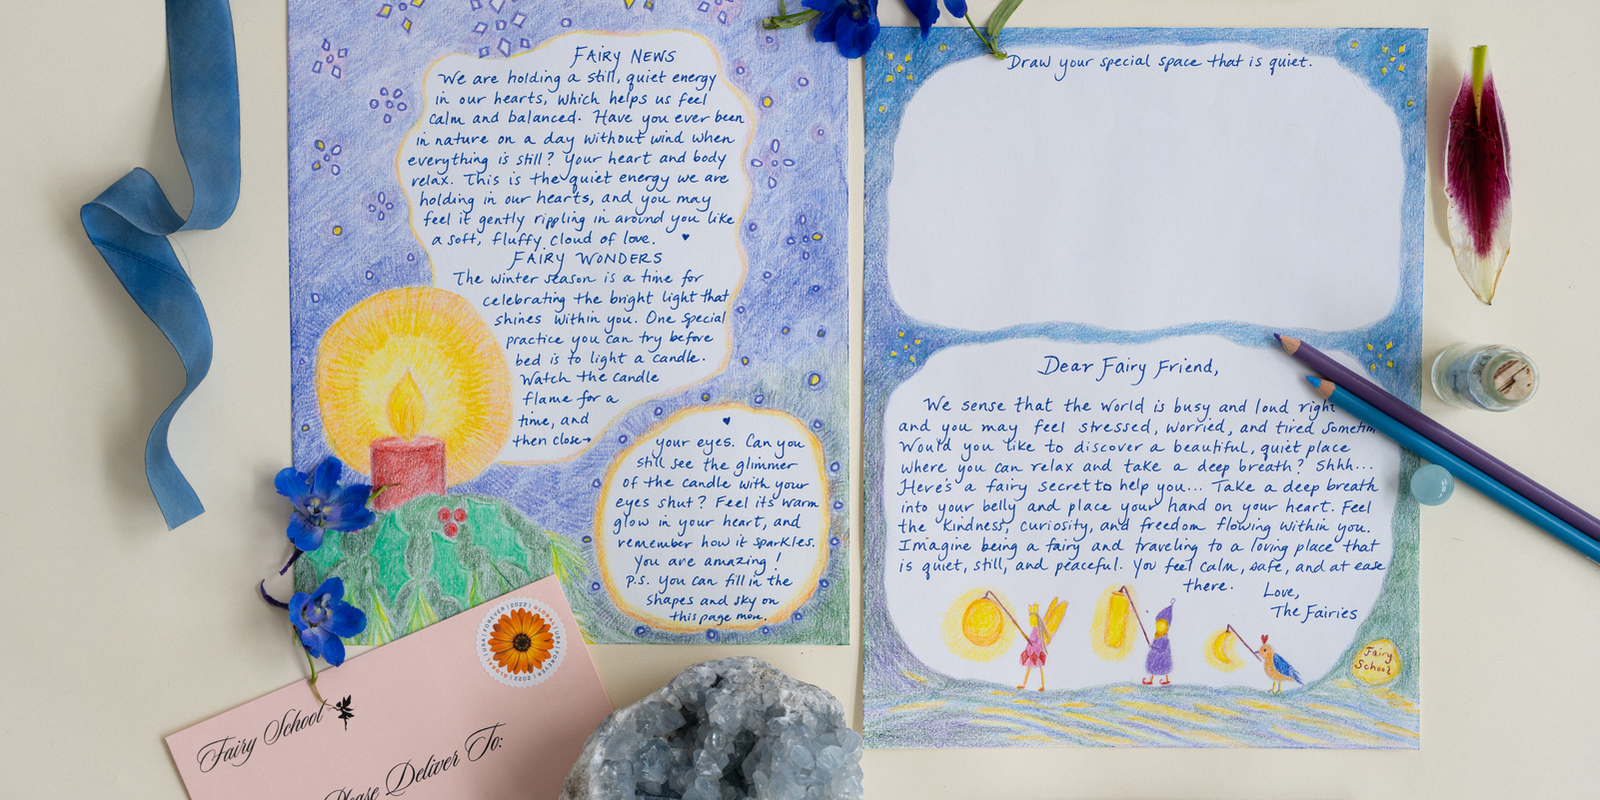 FAIRY NEWS
We are holding a still, quiet energy
in our hearts, which helps us feel
calm and balanced. Have you ever been
in nature on a day without wind when
everything is still? Your heart and body
relax. This is the quiet energy we are
holding in our hearts, and you may
feel it gently rippling in around you like
a soft, fluffy cloud of love.
FAIRY WONDERS
The winter season is a time for
celebrating the bright light that
shines within you. One special
practice you can try before
bed is to light a candle.
Watch the candle
flame for a
time, and
then close→
your eyes. Can you
still see the glimmer
of the candle with your
eyes shut? Feel its warm
glow in your heart, and
remember how it sparkles.
You are amazing!
P.S. you can fill in the
shapes and sky on
this page more.
Draw your special space that is quiet.
Dear Fairy Friend,
We sense that the world is busy and loud right
and you may feel stressed, worried, and tired
Would you like to discover a beautiful, quiet place
where you can relax and take a deep breath? Shhh...
Here's a fairy secret to help you... Take a deep breath
into your belly and place your hand on your heart. Feel
the kindness, curiosity, and freedom flowing within you.
Imagine being a fairy and traveling to a loving place that
is quiet, still, and peaceful. You feel calm, safe, and at ease
there. Love,
The Fairies
Fairy
School
GLOBAL | USA | FOREVER | 2022 | GLOBAL | USA | FOREVER | 2022
Fairy School
Please Deliver To: